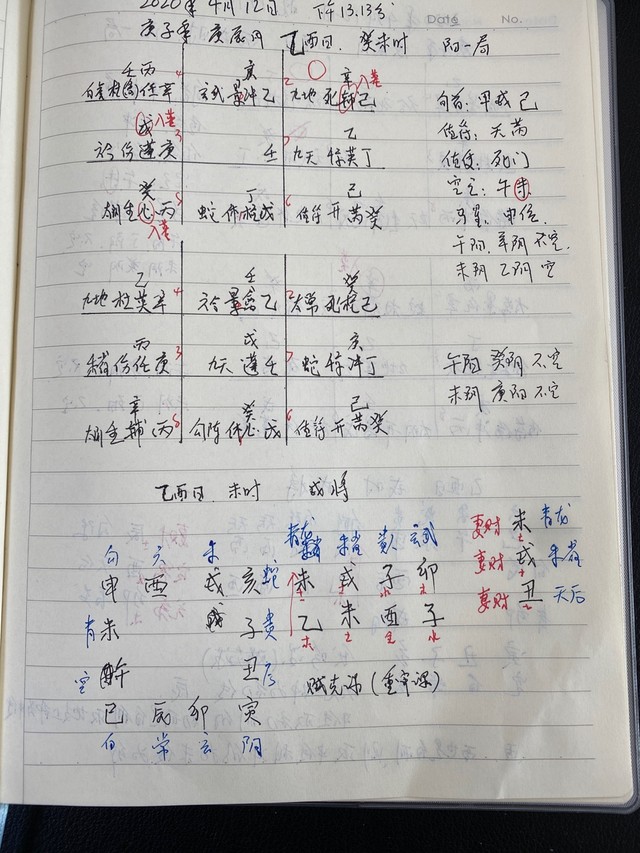 2020年 4月 12日 下午13.13分
Date No.
庚子年 庚辰月 乙酉日. 癸未时 阳一局
壬丙 4 庚 2 辛 入墓
玄武 景 冲 乙 九地 死 己
戊 入墓 3 7 乙
六合 伤 蓬 庚 壬 九天 惊 英 丁
癸 8 丁 6 己
生 心 丙 蛇 休 柱 戊 值符 开 芮 癸
入墓
旬首: 甲戌 己
值符: 天芮
值使: 死门
空亡: 午未
马星: 申位.
午阳. 不空.
未阴 乙阴 空
乙 壬 癸
九地 杜 英 辛 4 六合 景 禽 乙 2 太常 死 柱 己
丙 戊 庚
朱雀 伤 任 庚 3 九天 蓬 壬 7 蛇 惊 冲 丁
辛 癸 己
生 辅 丙 8 勾陈 休 心 戊 6 值符 开 芮 癸
午阳 癸阴 不空
未阴 庚阳 不空
乙酉日. 未时 戌将
青龙 朱雀 贵 玄武
勾 六 朱
申 酉 戌 亥 蛇 未 戌 子 卯
土 土 水 木
青 未 子 贵 乙 未 酉 子
木 土 金 水
空 午 丑 后
巳 辰 卯 寅
白 常 玄 阴
贼克法 (重审课)
妻财 未 青龙
土
妻财 戌 朱雀
土
妻财 丑 天后
土